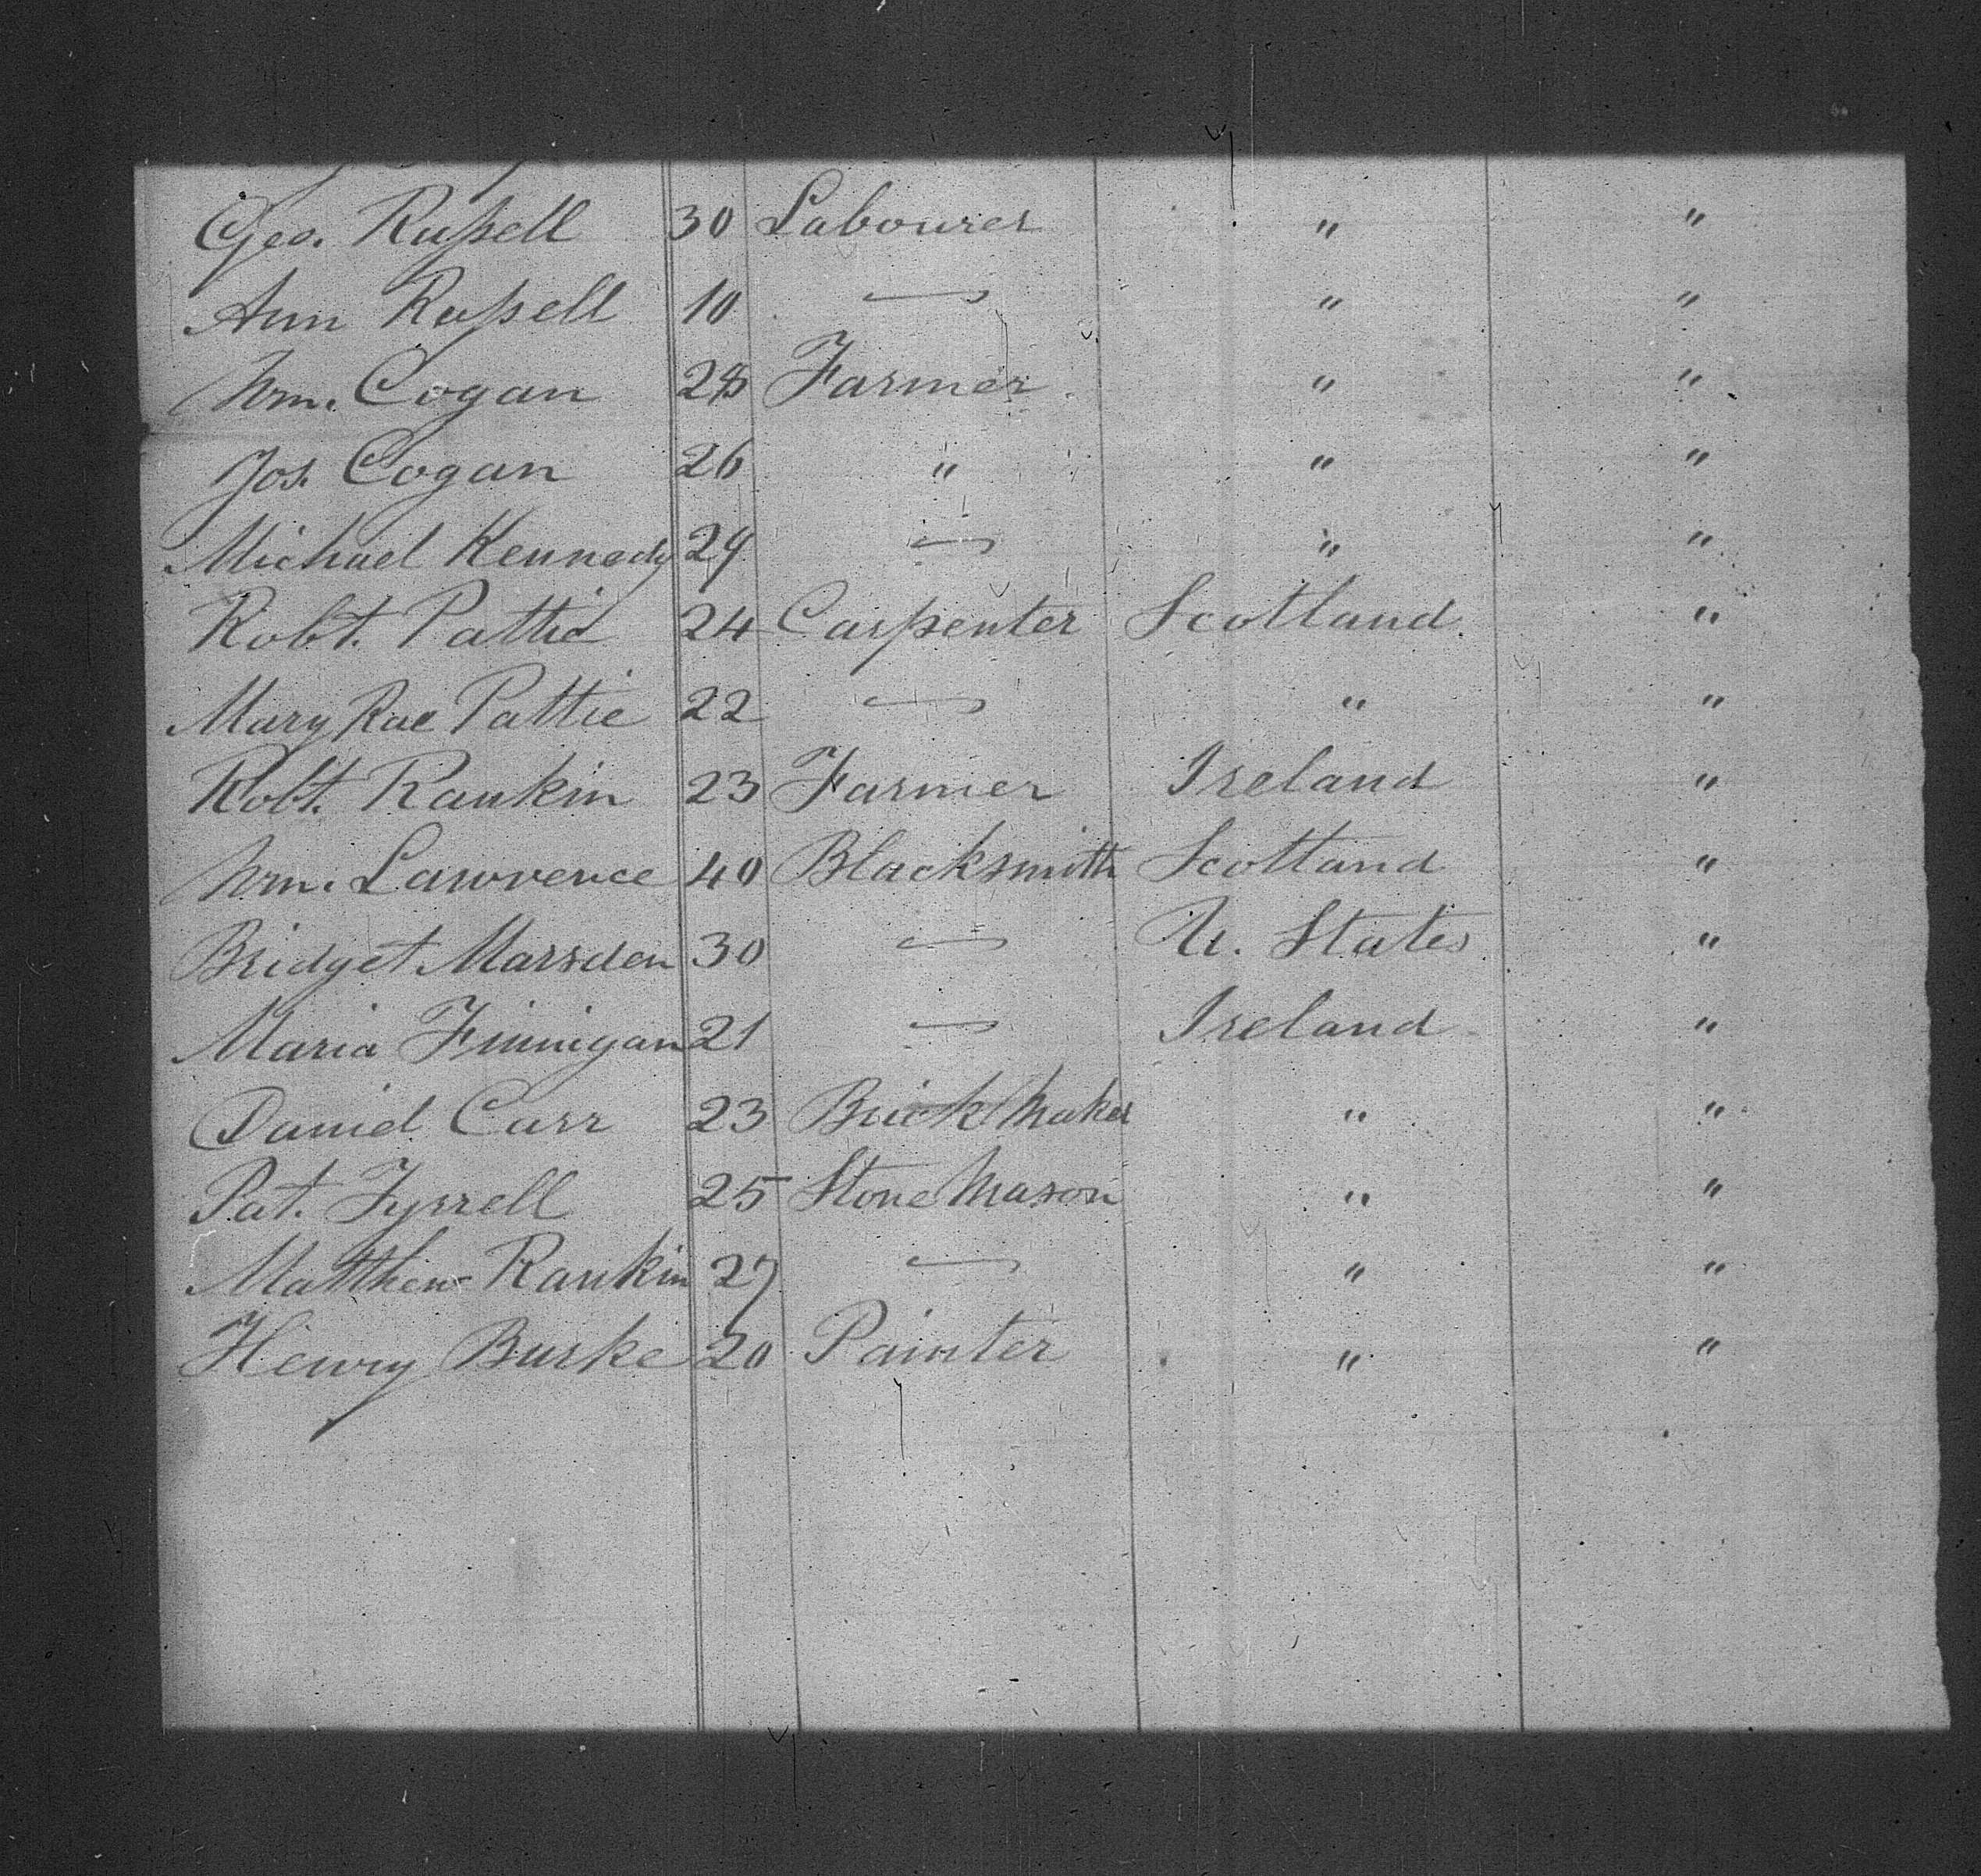 Geo. Russell 30 Labourer " "
Ann Russell 10 — " "
Wm. Cogan 28 Farmer " "
Jos. Cogan 26 " " "
Michael Kennedy 29 — " "
Robt. Pattie 24 Carpenter Scotland "
Mary Rae Pattie 22 — " "
Robt. Rankin 23 Farmer Ireland "
Wm. Lawrence 40 Blacksmith Scotland "
Bridget Marsden 30 — U. States "
Maria Finnigan 21 — Ireland "
Daniel Carr 23 Brick Maker " "
Pat. Tyrrell 25 Stone Mason " "
Matthew Rankin 27 — " "
Henry Burke 20 Painter " "